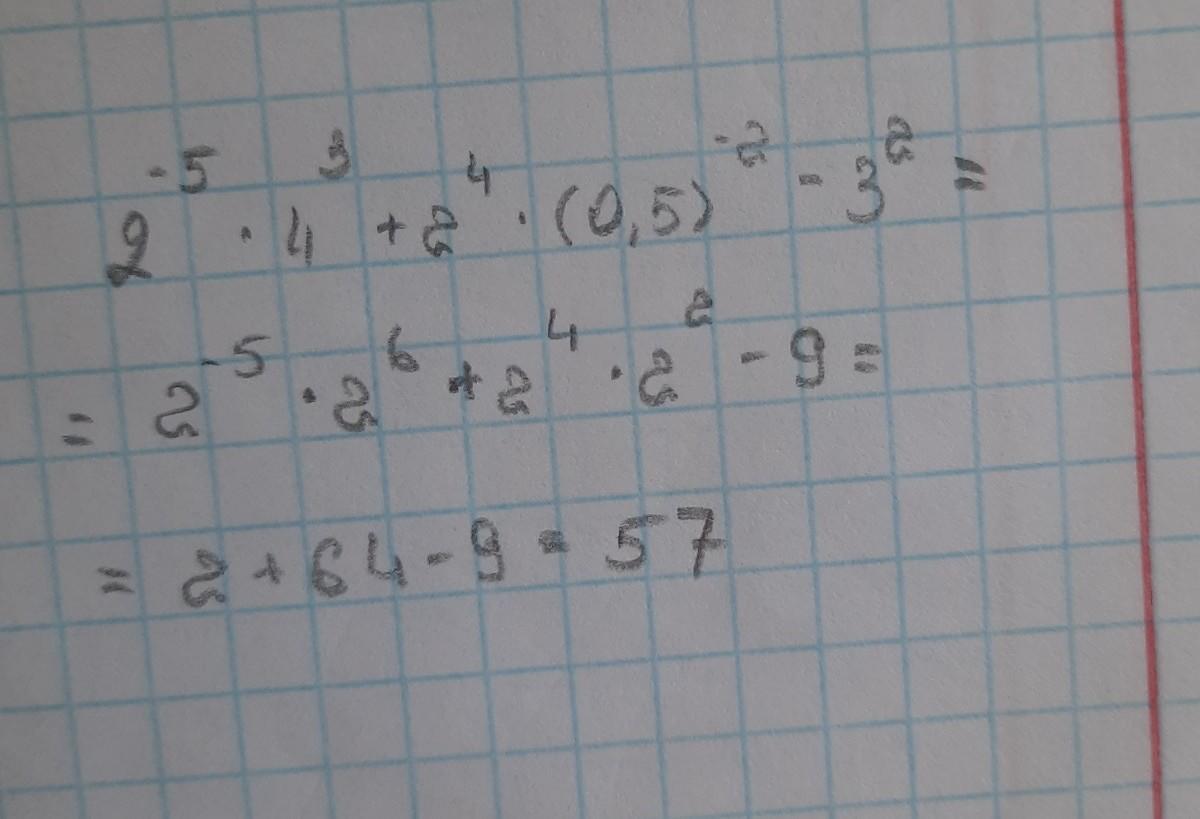 2⁻⁵ · 4³ + 2⁴ · (0,5)⁻² - 3² =
= 2⁻⁵ · 2⁶ + 2⁴ · 2² - 9 =
= 2 + 64 - 9 = 57